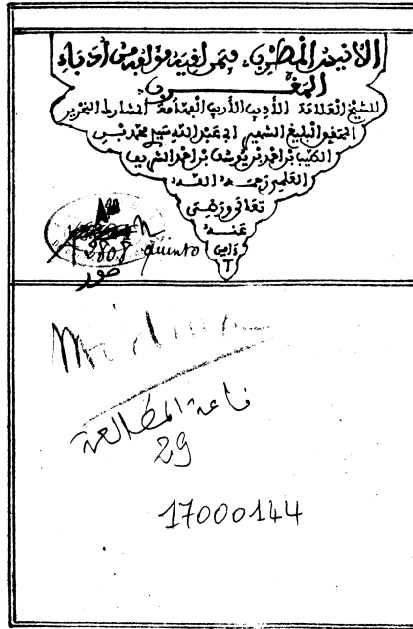 الانيس المطرب فيمن لقيته مؤلفه من أدباء
المغرب
للشيخ العلامة الأديب الأريب الفهامة المشارك النحرير
الفقيه البليغ الشهير ابي عبد الله سيدي محمد بن
الطيب بن احمد بن يوسف بن احمد الشريف
العلمي رحمه الله
تعالى ورضي
عنه
ءامين
2808
quinto
صور
قاعة المطالعة
29
17000144